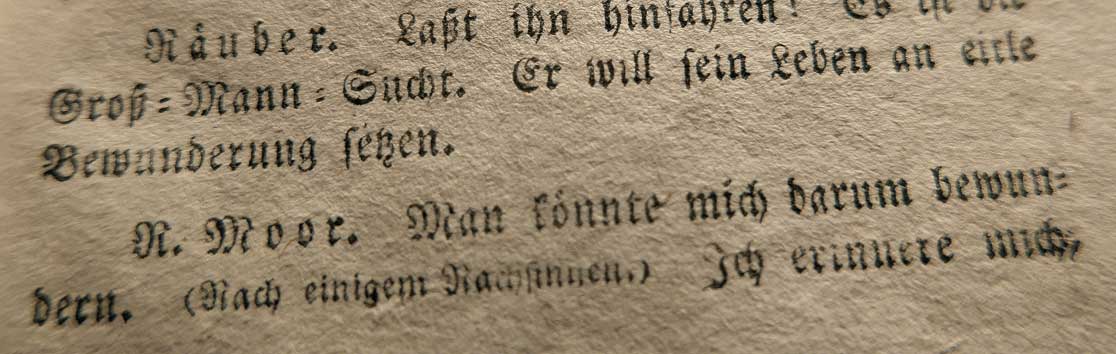 Räuber. Laßt ihn hinfahren! Es ist die
Groß-Mann-Sucht. Er will sein Leben an eitle
Bewunderung setzen.
R. Moor. Man könnte mich darum bewun-
dern. (Nach einigem Nachsinnen.) Ich erinnere mich,